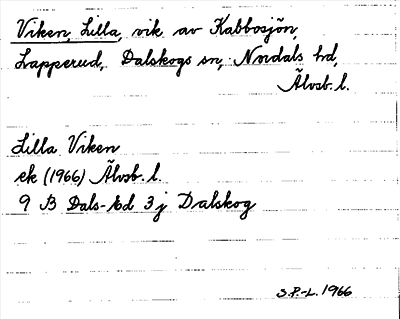 Viken, Lilla, vik av Kabbosjön,
Lapperud, Dalskogs sn, Nordals hd,
Älvsb. l.
Lilla Viken
ek (1966) Älvsb. l.
9 B Dals-Ed 3 j Dalskog
S.P.-L. 1966